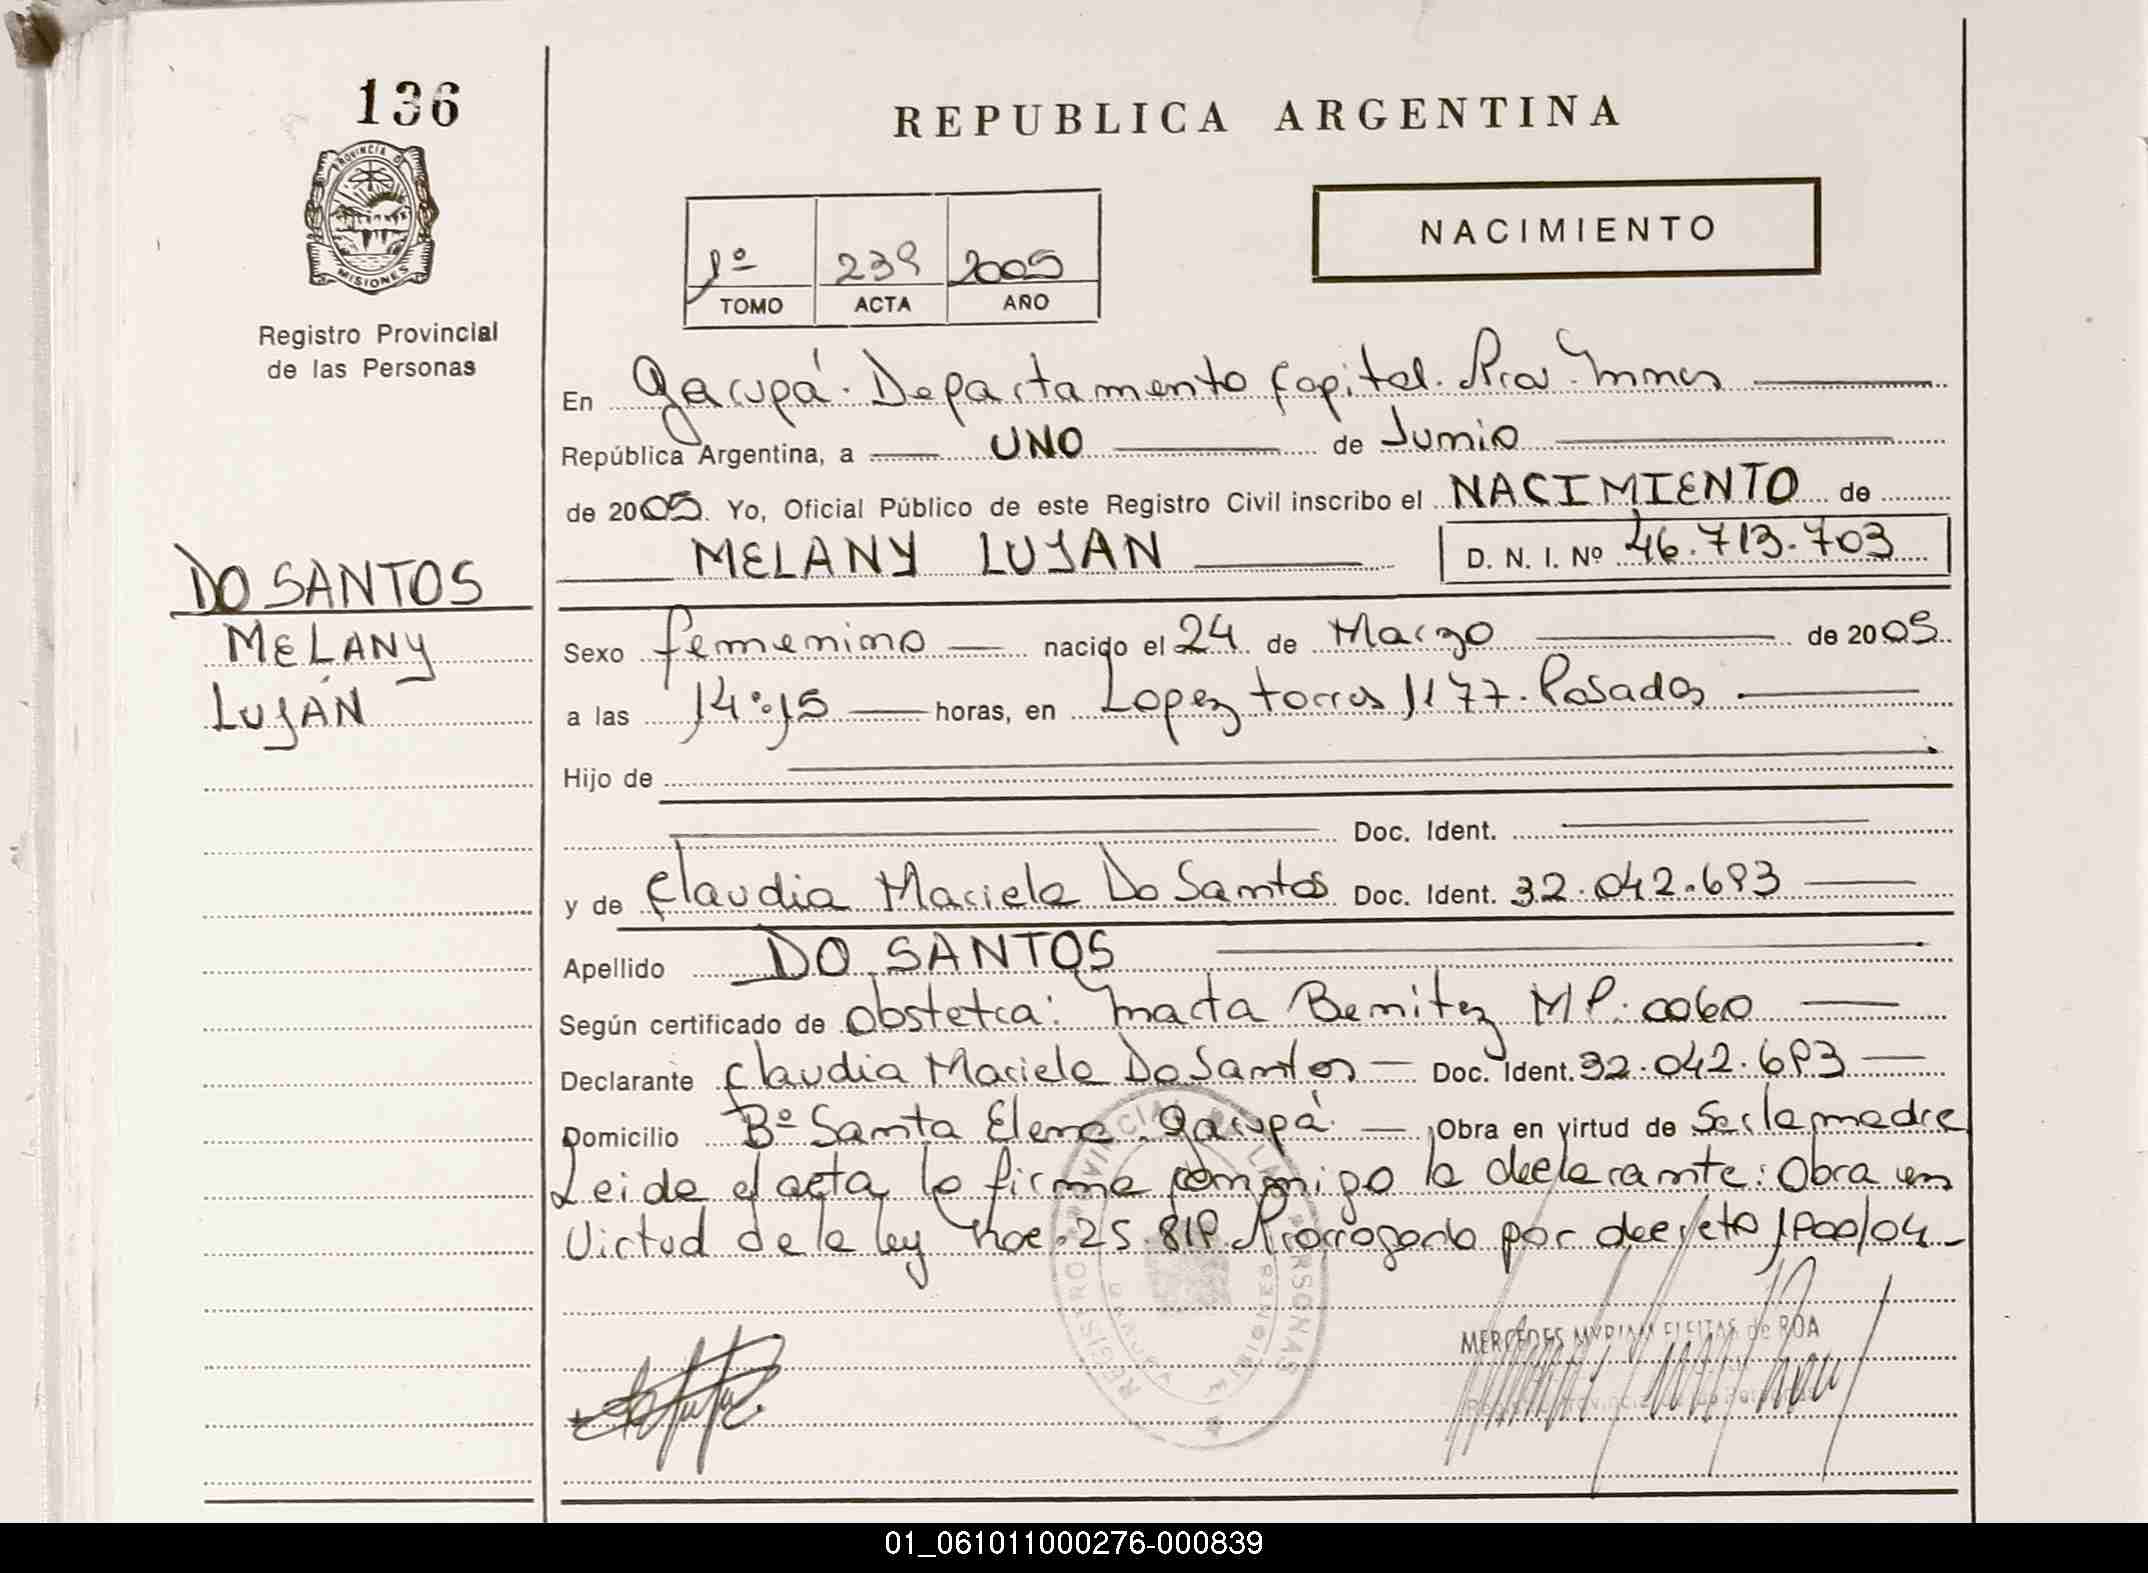 136
REPUBLICA ARGENTINA
PROVINCIA D
MISIONES
Registro Provincial
de las Personas
NACIMIENTO
1º 239 2005
TOMO ACTA AÑO
En Garupá. Departamento Capital.
República Argentina, a UNO de Junio
de 2005. Yo, Oficial Público de este Registro Civil inscribo el NACIMIENTO de
MELANY LUJAN D. N. I. Nº 46.713.703
DO SANTOS
MELANY
LUJÁN
Sexo femenino nacido el 24 de Marzo de 2005
a las 14:15 horas, en Lopez torres 1177. Posadas
Hijo de
Doc. Ident.
y de Claudia Mariela Do Santos Doc. Ident. 32.042.693
Apellido DO SANTOS
Según certificado de obstetra: Marta Benitez MP. 0060
Declarante Claudia Mariela Do Santos Doc. Ident. 32.042.693
Domicilio Bº Santa Elena. Garupá. Obra en virtud de Ser la madre
Leida el acta, la firma conmigo la declarante: Obra en
Virtud de la ley 25.819 Prorrogada por decreto 1900/04
REGISTRO PROVINCIAL DE LAS PERSONAS
MERCEDES MYRIAM FLEITAS de ROA
01_061011000276-000839